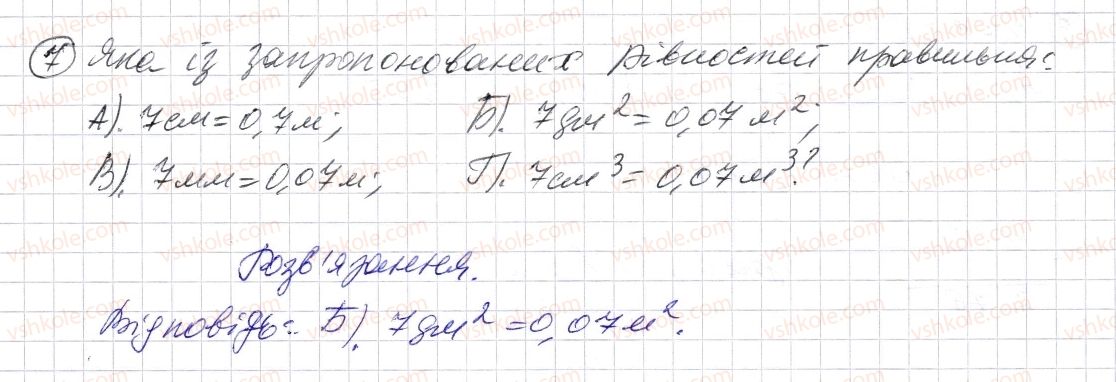 7 Яка із запропонованих рівностей правильна:
А). 7см=0,7м; Б). 7дм²=0,07м²;
В). 7мм=0,07м; Г). 7см³=0,07м³?
Розв'язання.
Відповідь: Б). 7дм²=0,07м².